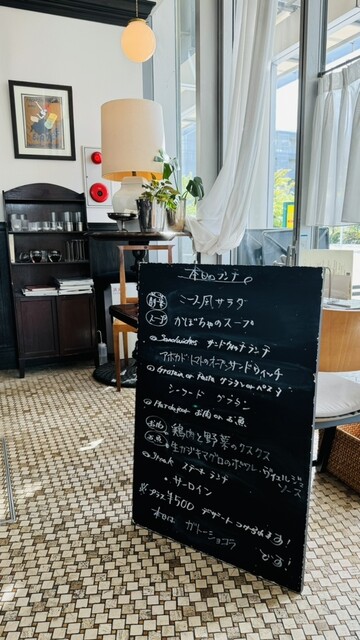 本日のランチ。
前菜 ニース風サラダ
スープ かぼちゃのスープ
Sandwiches サンドウィッチランチ
アボカドトマトのオープンサンドウィッチ
Gratin or Pasta グラタン or パスタ
シーフード グラタン
お肉 or お魚
お肉 鶏肉と野菜のクスクス
お魚 生カジキマグロのポワレ
ソース
Steak ステーキ ランチ
・サーロイン
※プラス¥500 デザート
本日は ガトーショコラ
です!